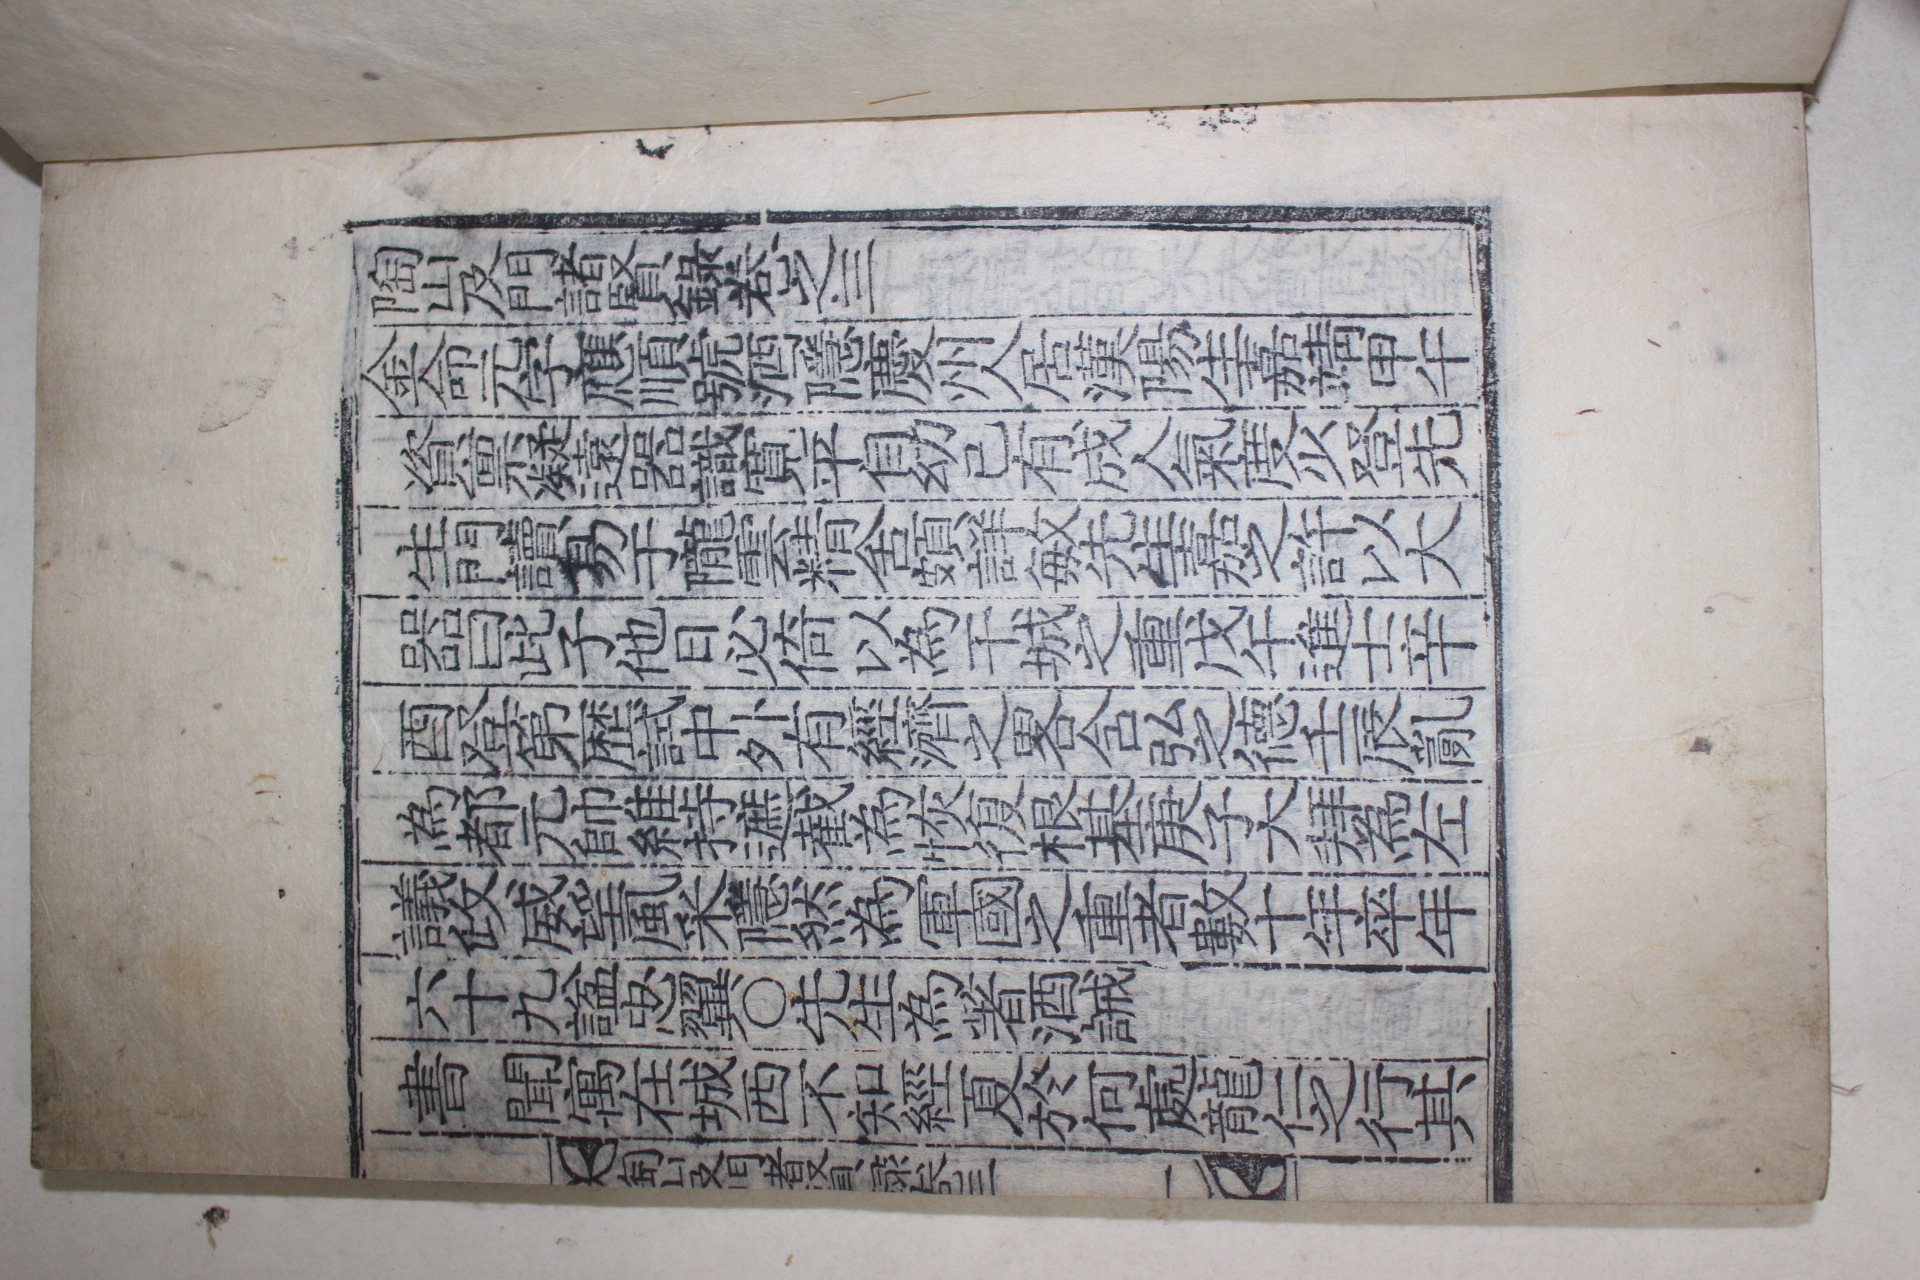 陶山及門諸賢錄卷之三
金命元字應順號酒隱慶州人居漢陽生嘉靖甲午
資稟凝遠器識寬平自幼已有成人氣度少登先
生門讀易于隴雲精舍質詳敏先生嘉之許以大
器曰此子他日必倚以爲干城之重戊午進士辛
酉登第歷試中外有經濟之畧含弘之德壬辰亂
爲都元帥維持遮截爲恢復根基庚子大拜爲左
議政威望風采隱然爲軍國之重者數十年卒年
六十九謚忠翼○先生爲書酒誡
書 聞寓在城西不知經夏於何處龍仁之行其
陶山及門諸賢錄卷三 一